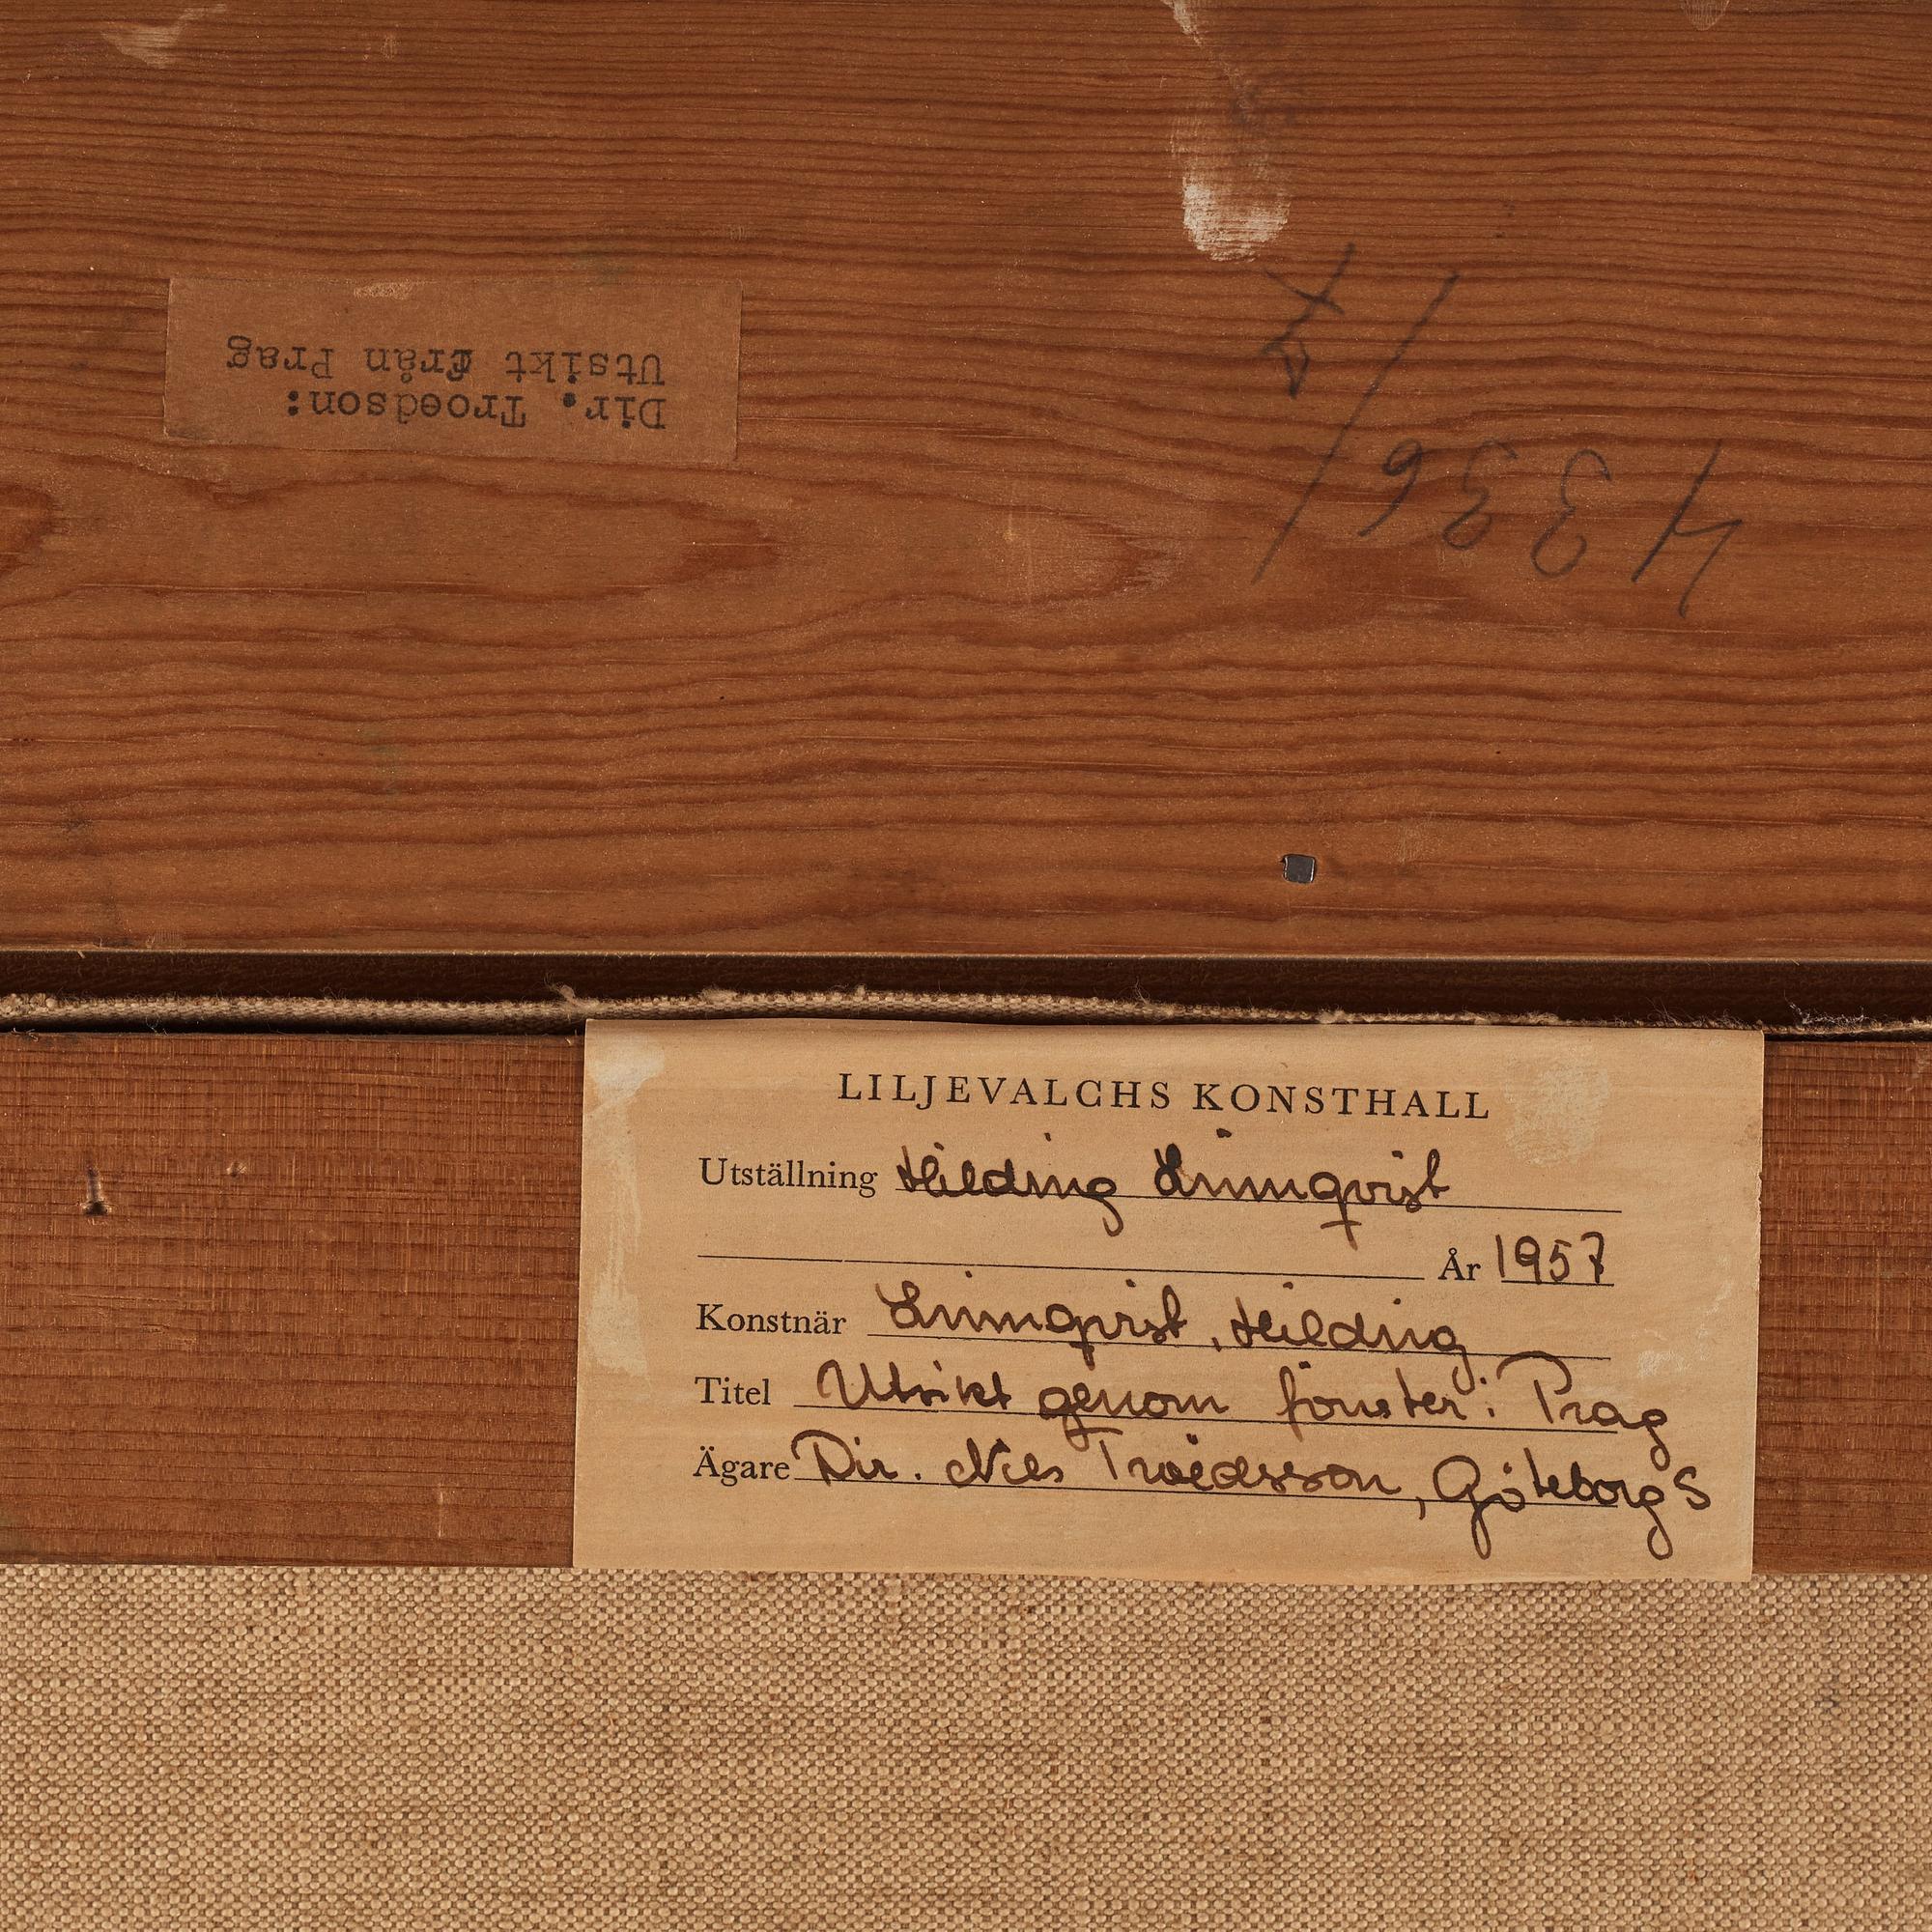 Dir. Troedson:
Utsikt från Prag
1336/
LILJEVALCHS KONSTHALL
Utställning Hilding Linnqvist
År 1957
Konstnär Linnqvist, Hilding
Titel Utsikt genom fönster: Prag
Ägare Dir. Nils Troedsson, Göteborg S